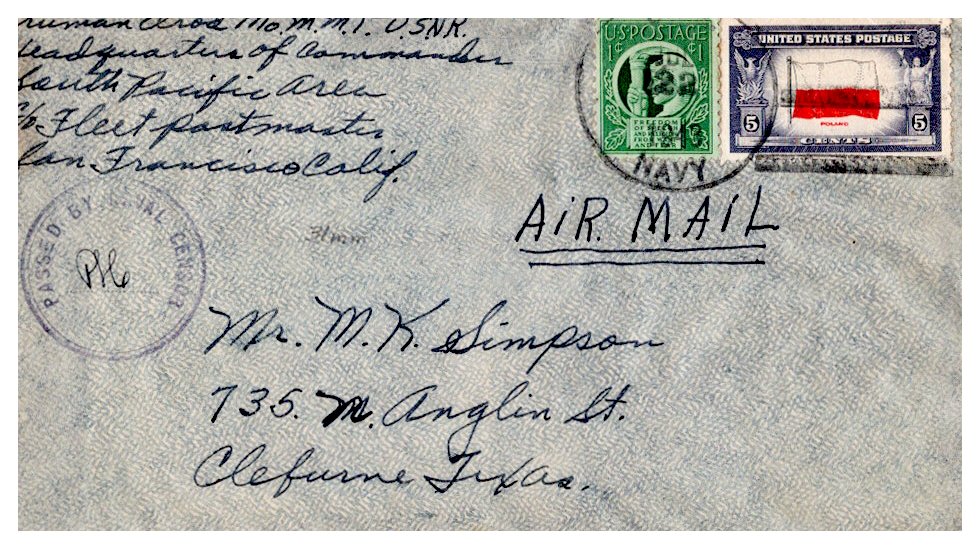 Truman Mo.M.M.1. USNR.
Headquarters of Commander
South Pacific Area
c/o Fleet Postmaster
San Francisco Calif.
U.S. POSTAGE
1¢ 1¢
FREEDOM
OF SPEECH
AND RELIGION
FROM WANT
AND FEAR
UNITED STATES POSTAGE
POLAND
5 5
CENTS
22
NAVY
AiR. MAiL
PASSED BY NAVAL CENSOR
31mm
Mr. M. K. Simpson
735. N. Anglin St.
Cleburne Texas.